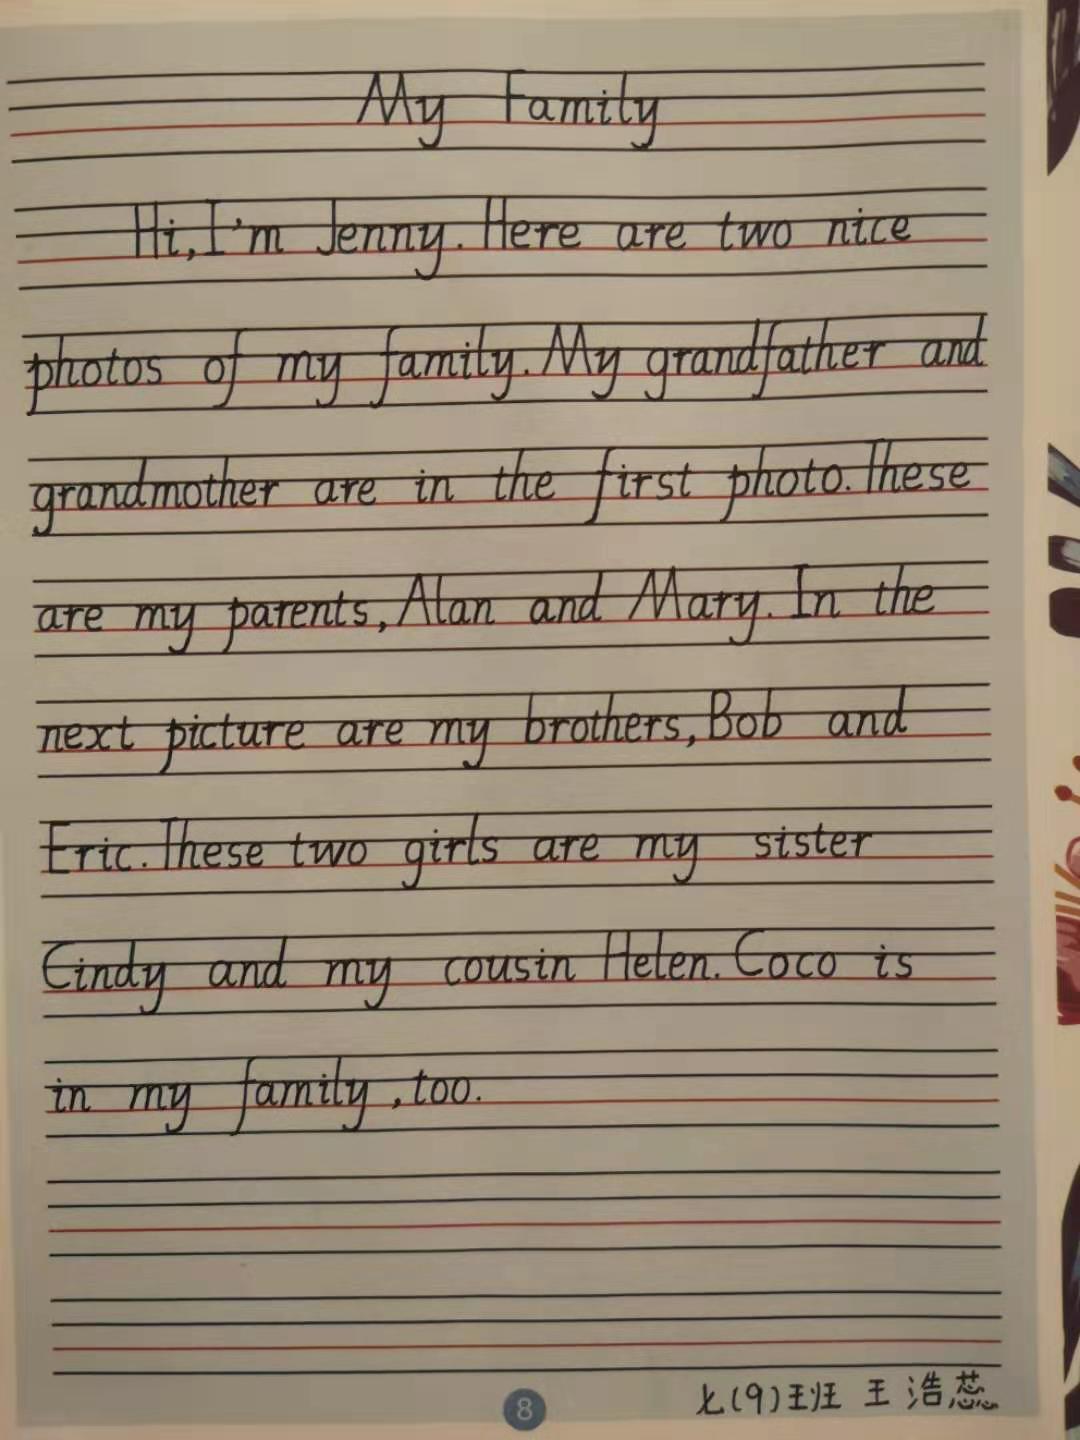 My Family
Hi, I'm Jenny. Here are two nice
photos of my family. My grandfather and
grandmother are in the first photo. These
are my parents, Alan and Mary. In the
next picture are my brothers, Bob and
Eric. These two girls are my sister
Cindy and my cousin Helen. Coco is
in my family, too.
8
七(9)班 王浩蕊